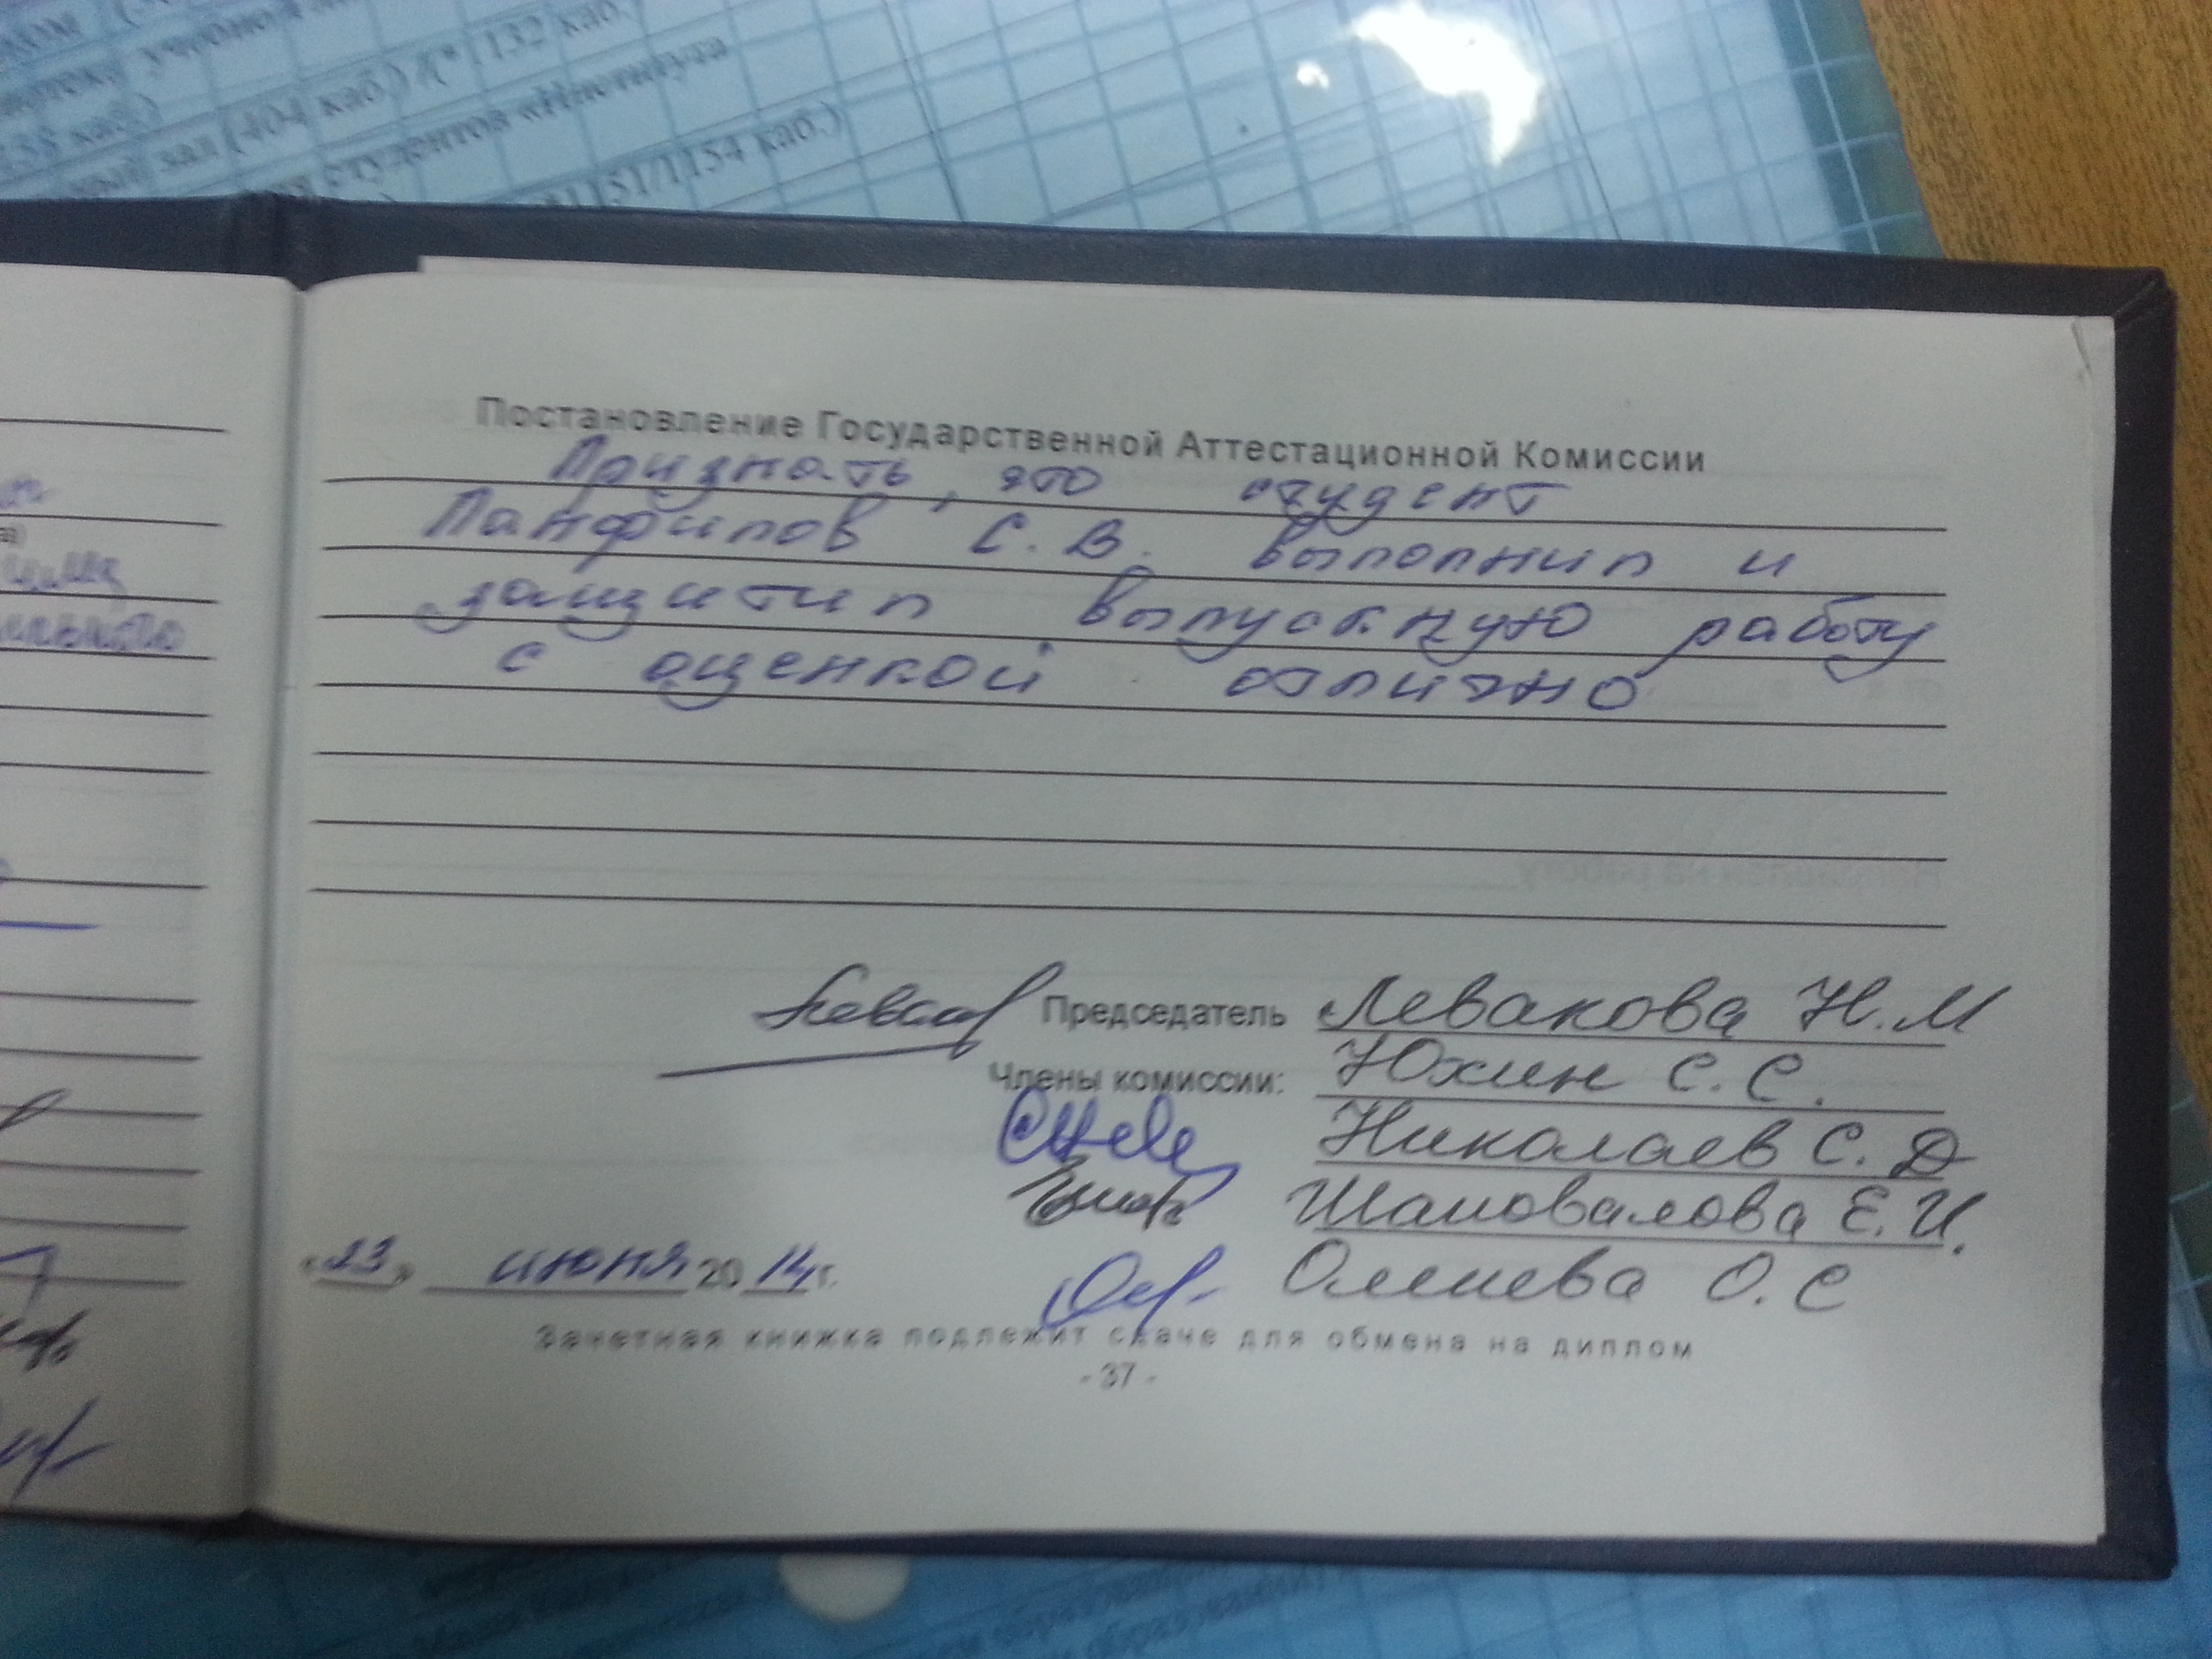 (404 каб.) /(*1132 каб.)
студентов «Института
1151/1154 каб.)
Постановление Государственной Аттестационной Комиссии
Признать, что студент
Панфилов С. В. выполнил и
защитил выпускную работу
с оценкой отлично
Председатель Левакова Н. М
Члены комиссии: Юхин С. С.
Николаев С. Д
Шаповалова Е. И.
Олешева О. С
«23» июня 2014 г.
Зачетная книжка подлежит сдаче для обмена на диплом
- 37 -